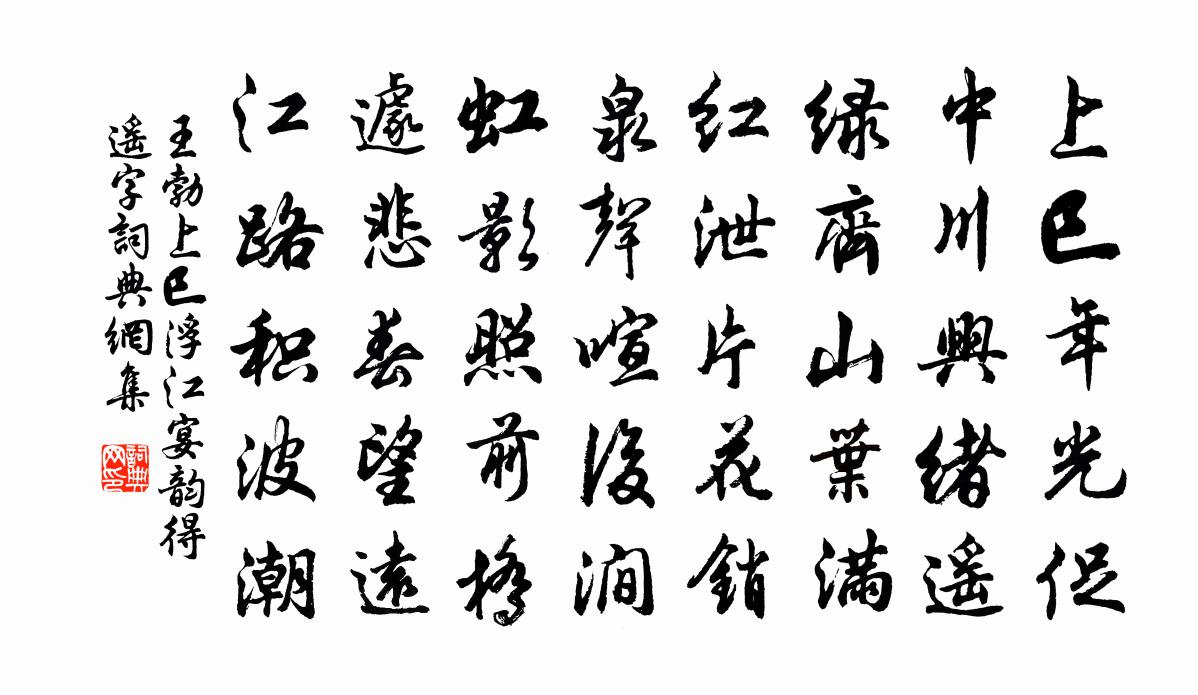 上巳年光促
中川興緒遥
緑齊山葉滿
红泄片花銷
泉聲喧後澗
虹影照前橋
遽悲春望遠
江路积波潮
王勃上巳浮江宴韵得
遥字詞典網集
詞典网印